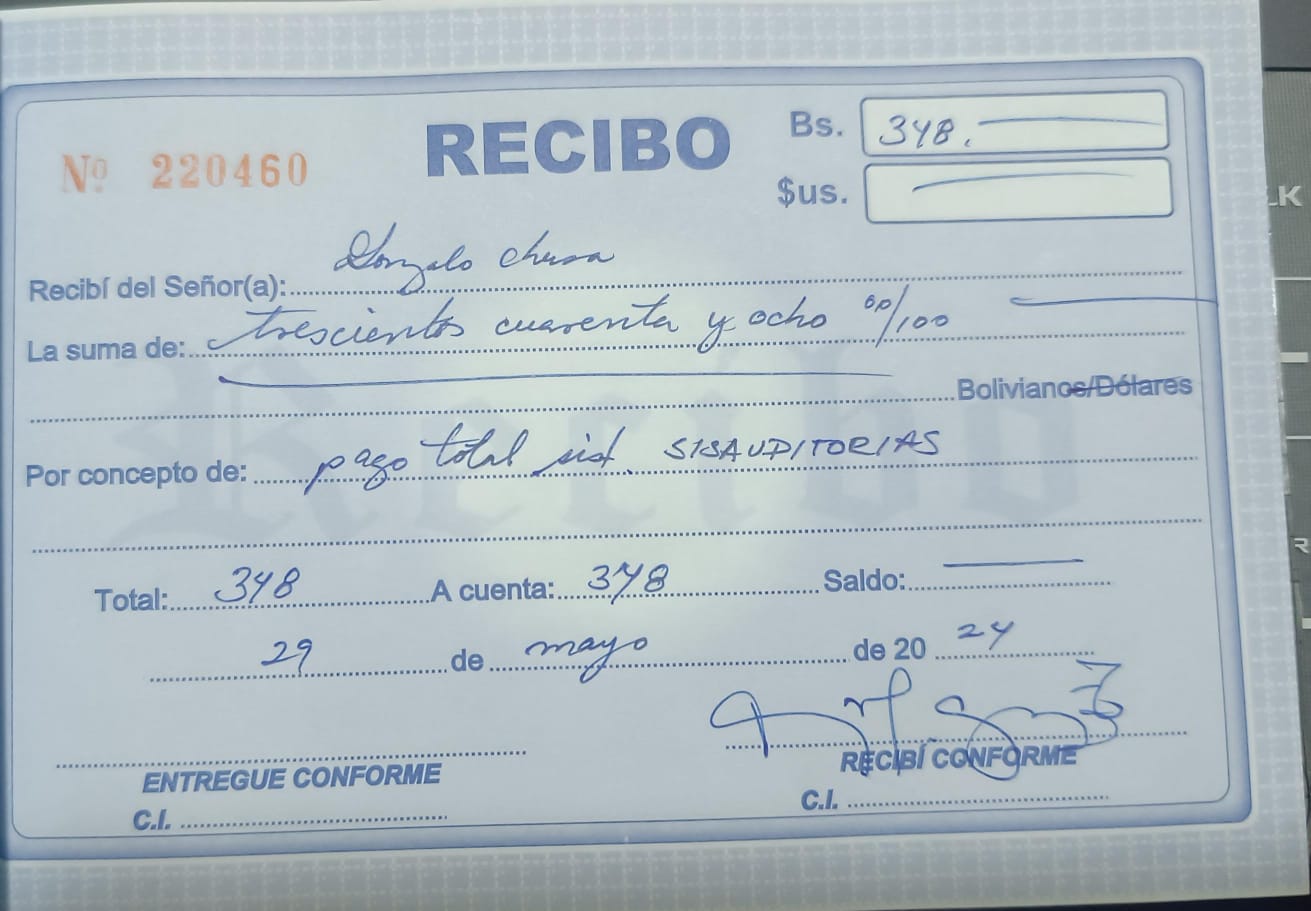 RECIBO
Nº 220460
Bs. 348.
$us.
Recibí del Señor(a): Gonzalo
La suma de: trescientos cuarenta y ocho 00/100
Bolivianos/Dólares
Por concepto de: pago total sist. SISAUDITORIAS
Recibo
Total: 348 A cuenta: 348 Saldo:
29 de mayo de 2024
ENTREGUE CONFORME
C.I.
RECIBÍ CONFORME
C.I.
LK
R